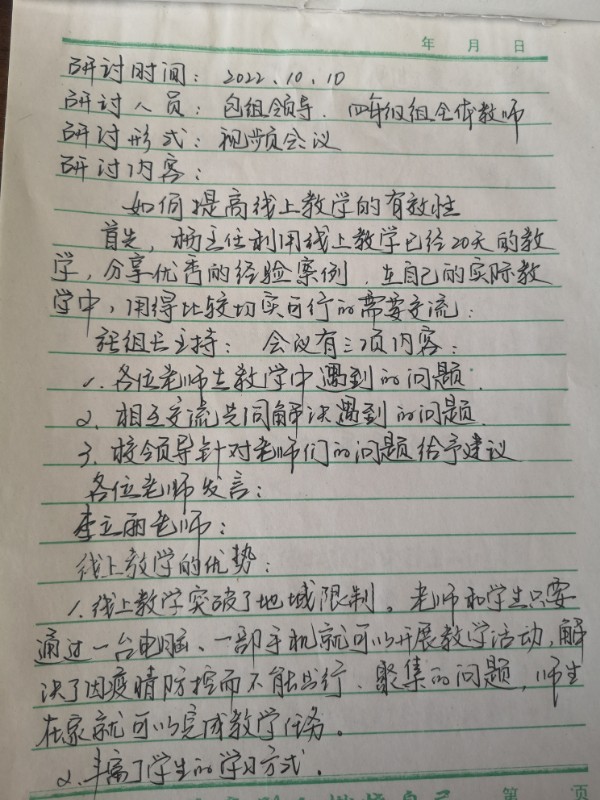 年 月 日
研讨时间：2022.10.10
研讨人员：包组领导、四年级组全体教师
研讨形式：视频会议
研讨内容：
如何提高线上教学的有效性
首先，杨主任利用线上教学已经20天的教
学，分享优秀的经验案例，在自己的实际教
学中，用得比较切实可行的需要交流：
张组长主持：会议有三项内容：
1、各位老师在教学中遇到的问题.
2、相互交流共同解决遇到的问题.
3、校领导针对老师们的问题给予建议
各位老师发言：
李立丽老师：
线上教学的优势：
1、线上教学突破了地域限制。老师和学生只要
通过一台电脑、一部手机就可以开展教学活动，解
决了因疫情防控而不能出行、聚集的问题，师生
在家就可以完成教学任务。
2、丰富了学生的学习方式.
第 页